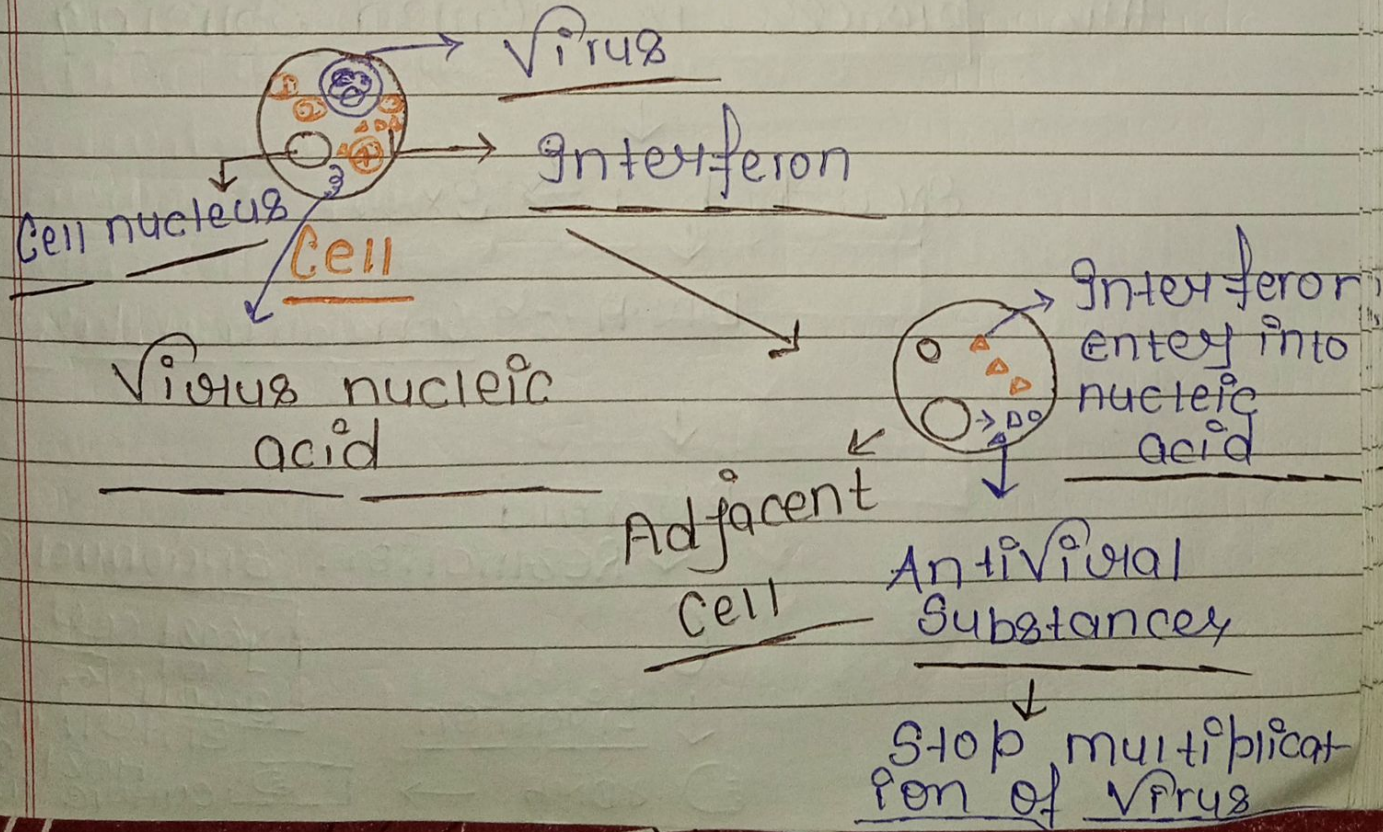 Virus
Interferon
Cell nucleus
Cell
Virus nucleic
acid
Interferon
enter into
nucleic
acid
Adjacent
Cell
AntiViral
Substances
Stop multiplicat
ion of Virus